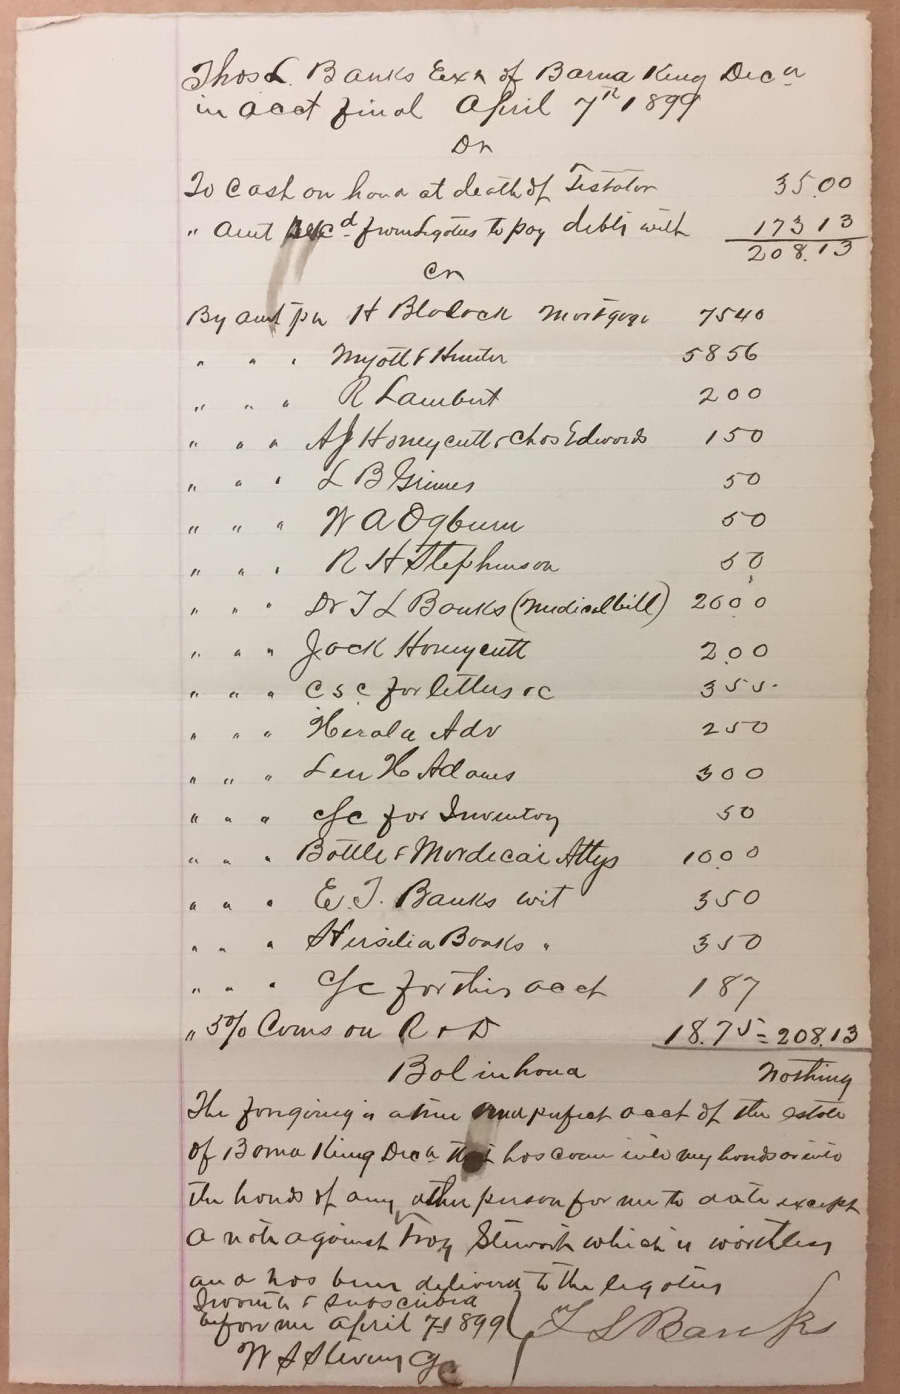 Thos L. Banks Exr of Barna King Decd
in acct final April 7th 1899
Dr
To Cash on hand at death of Testator 35.00
" amt Recd from Legatees to pay debts with 173 13
208.13
Cr
By amt pd H Blalock Mortgage 7540
" " " Myatt & Hunter 5856
" " " R Lambert 200
" " " AJ Honeycutt & Chas Edwards 150
" " " L B Grimes 50
" " " W A Ogburn 50
" " " R H Stephenson 50
" " " Dr T L Banks (Medical bill) 2000
" " " Jack Honeycutt 2.00
" " " C S C for letters &c 355
" " " Herald Adv 250
" " " Len H Adams 300
" " " CSC for Inventory 50
" " " Battle & Mordecai Attys 10.00
" " " E. T. Banks wit 350
" " " Hersilia Banks " 350
" " " CSC for this acct 187
" 5% Coms on R & D 18.75 = 208.13
Bal in hand Nothing
The forgoing is a true and perfect acct of the estate
of Barna King Decd that has come into my hands or into
the hands of any other person for me to date except
a note against Troy Stewart which is worthless
and has been delivered to the legatees
Sworn to & subscribed
before me April 7th 1899 T L Banks
W S Stevens CSC